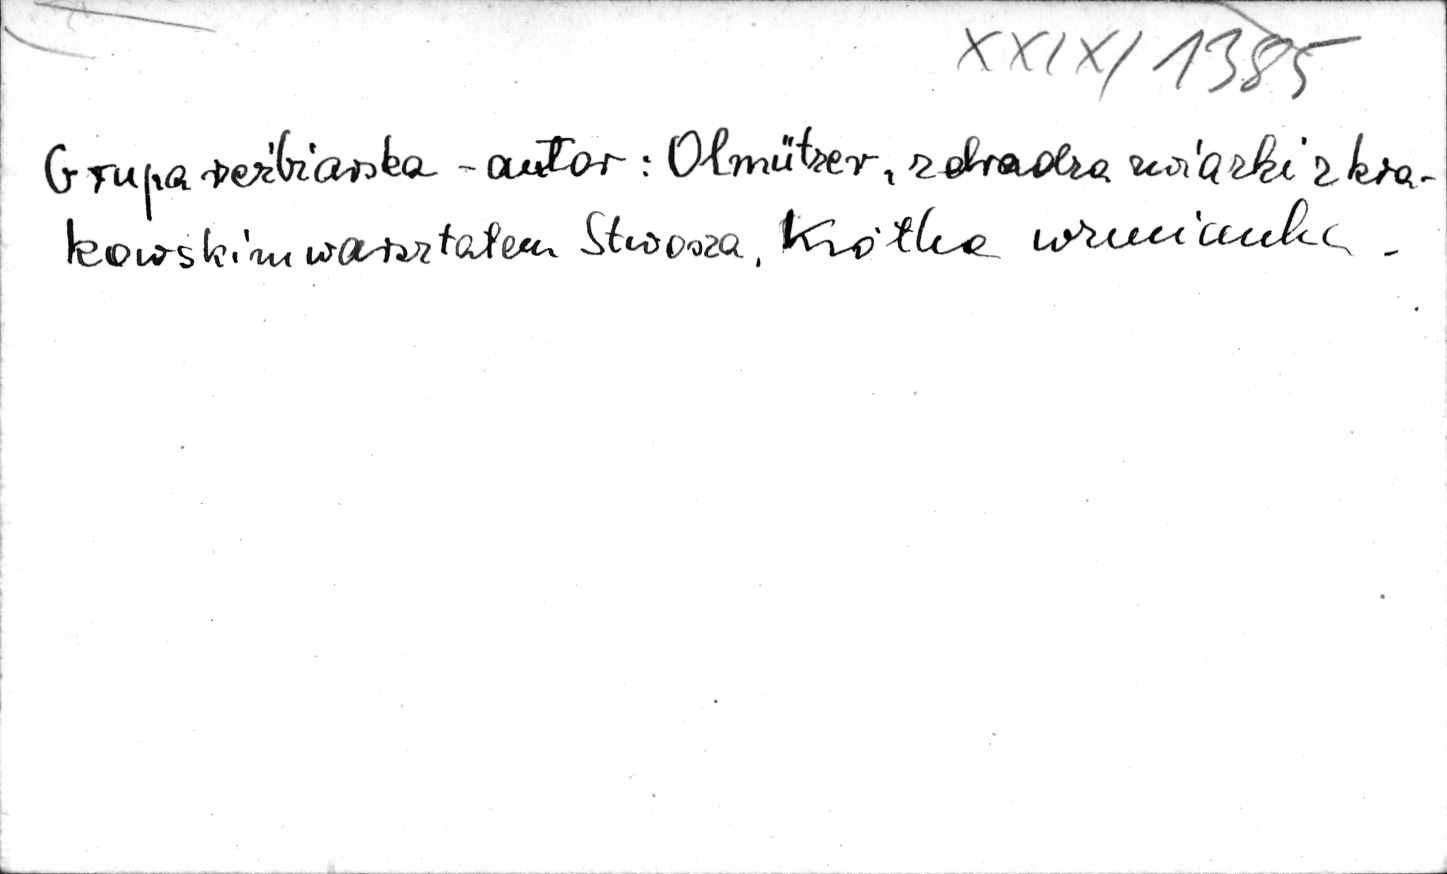 XXIX/1385
Grupa rzeźbiarska - autor: Olmützer, zdradza związki z kra-
kowskim warsztatem Stwosza, Krótka wzmianka.